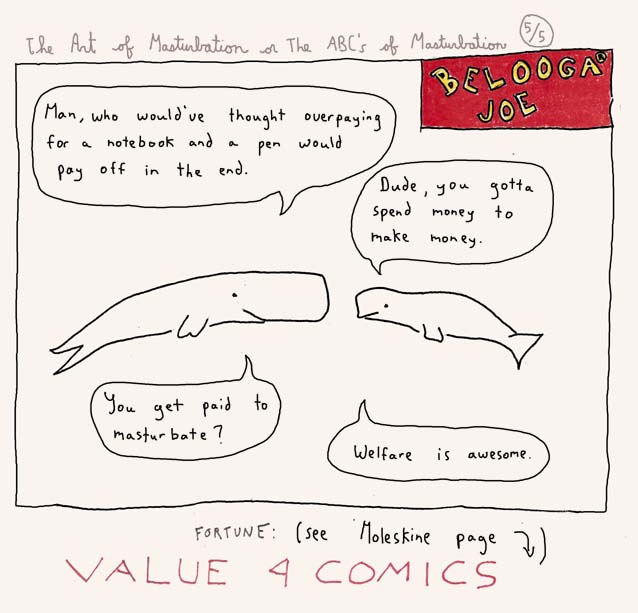 The Art of Masturbation or The ABC's of Masturbation 5/5
BELOOGA
JOE
Man, who would've thought overpaying
for a notebook and a pen would
pay off in the end.
Dude, you gotta
spend money to
make money.
You get paid to
masturbate?
Welfare is awesome.
FORTUNE: (see Moleskine page )
VALUE 4 COMICS